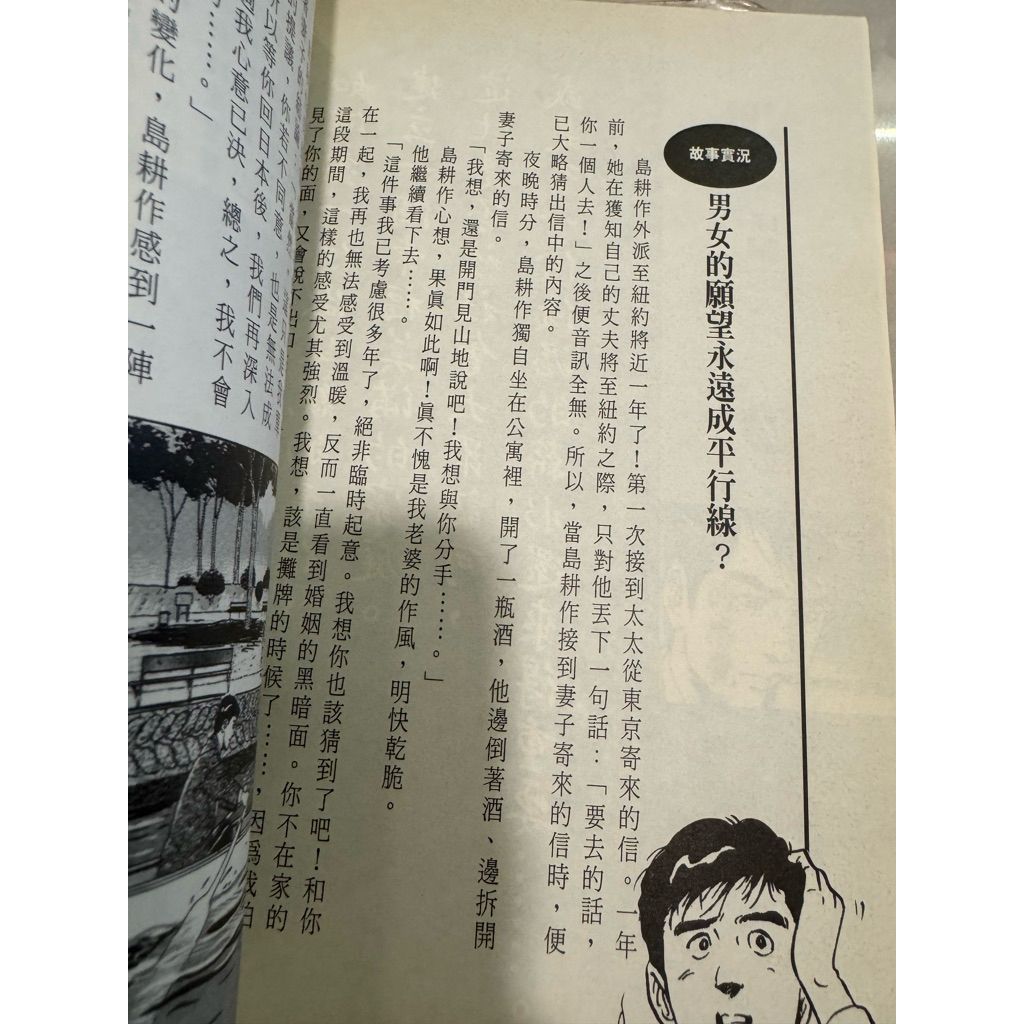 故事實況
男女的願望永遠成平行線？
島耕作外派至紐約將近一年了！第一次接到太太從東京寄來的信。一年
前，她在獲知自己的丈夫將至紐約之際，只對他丟下一句話：「要去的話，
你一個人去！」之後便音訊全無。所以，當島耕作接到妻子寄來的信時，便
已大略猜出信中的內容。
夜晚時分，島耕作獨自坐在公寓裡，開了一瓶酒，他邊倒著酒、邊拆開
妻子寄來的信。
「我想，還是開門見山地說吧！我想與你分手……。」
島耕作心想，果眞如此啊！眞不愧是我老婆的作風，明快乾脆。
他繼續看下去……。
「這件事我已考慮很多年了，絕非臨時起意。我想你也該猜到了吧！和你
在一起，我再也無法感受到溫暖，反而一直看到婚姻的黑暗面。你不在家的
這段期間，這樣的感受尤其強烈。我想，該是攤牌的時候了……，因爲我怕
見了你的面，又會說不出口
的提議，你若不同意，也是無法成
所以等你回日本後，我們再深入
過我心意已決，總之，我不會
……。」
的變化，島耕作感到一陣